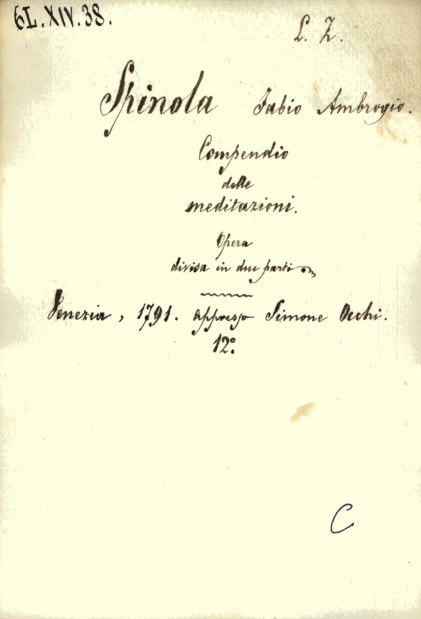 6L.XIV.38.
L. Z.
Spinola Fabio Ambrogio.
Compendio
delle
meditazioni.
Opera
divisa in due parti
Venezia, 1791. appresso Simone Occhi.
12°
C